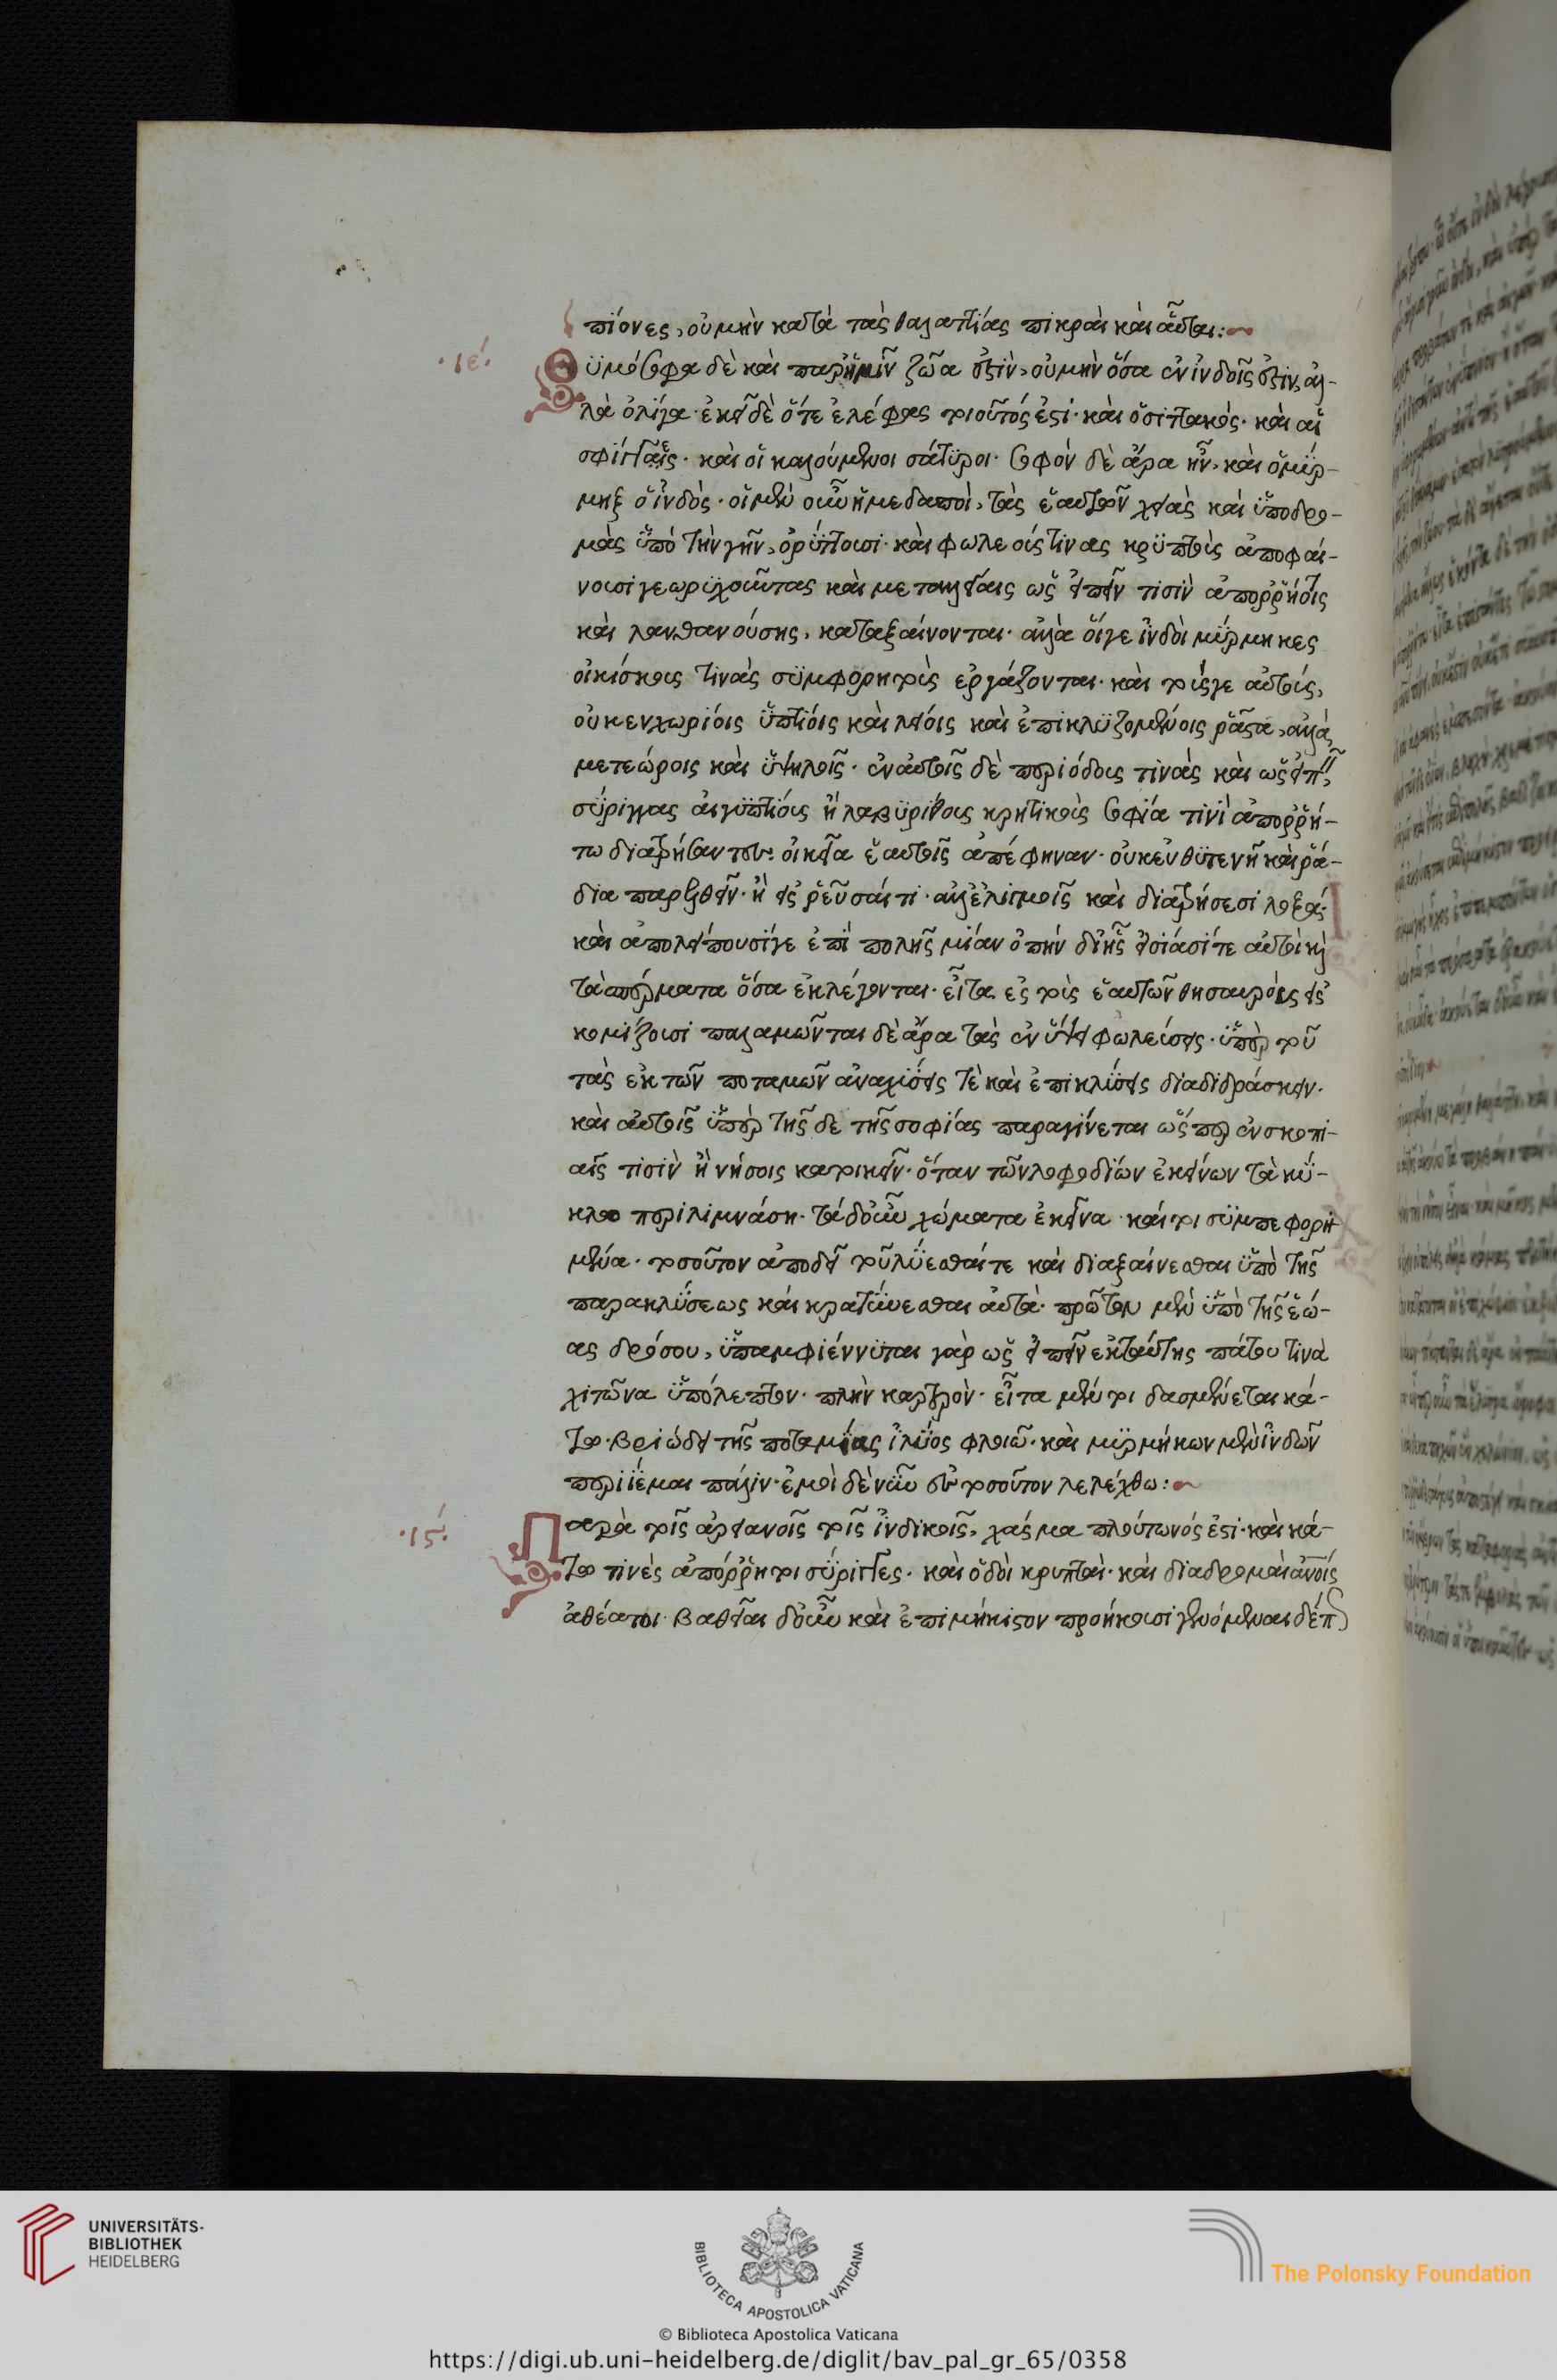 πίονες, οὐ μὴν κατὰ τὰς θαλαττίας πικραὶ καὶ αὗται:~
·ιε΄· Θυμόσοφα δὲ καὶ παρ' ἡμῖν ζῶα ἐστὶν, οὐ μὴν ὅσα ἐν ἰνδοῖς ἐστιν, ἀλ-
λὰ ὀλίγα· ἐκεῖ δὲ ὅτε ἐλέφας τοιοῦτός ἐστι· καὶ ὁ σιττακός· καὶ αἱ
σφίγγες· καὶ οἱ καλούμενοι σάτυροι· σοφὸν δὲ ἄρα ἦν, καὶ ὁ μύρ-
μηξ ὁ ἰνδὸς· οἱ μὲν οὖν ἡμεδαποὶ, τὰς ἑαυτῶν χειὰς καὶ ὑποδρο-
μὰς ὑπὸ τὴν γῆν, ὀρύττουσι· καὶ φωλεούς τινας κρυπτοὺς ἀποφαί-
νουσι γεωρυχοῦντας καὶ μεταλλείαις ὡς εἰπεῖν τισὶν ἀπορρήτοις
καὶ λανθανούσης, καταξαίνονται· ἀλλὰ οἵγε ἰνδοὶ μύρμηκες
οἰκίσκους τινὰς συμφορητοὺς ἐργάζονται· καὶ τούς γε αὐτούς,
οὐκ ἐν χωρίοις ὑπτίοις καὶ λείοις καὶ ἐπικλυζομένοις ῥᾷστα, ἀλλὰ
μετεώροις καὶ ὑψηλοῖς· ἐν αὐτοῖς δὲ περιόδους τινὰς καὶ ὡς εἰπεῖν,
σύριγγας αἰγυπτίους ἢ λαβυρίνθους κρητικοὺς σοφία τινὶ ἀπορρή-
τω διατρήσαντες οἰκεῖα ἑαυτοῖς ἀπέφηναν· οὐκ εὐθυτενῆ καὶ ῥά-
δια παρελθεῖν· ἢ εἰς ῥεῦσαί τι· ἀλλ' ἑλιγμοῖς καὶ διατρήσεσι λοξά·
καὶ ἀπολείπουσί γε ἐπὶ πολῆς μίαν ὀπὴν δι' ἧς εἰσίασί τε αὐτοὶ καὶ
τὰ σπέρματα ὅσα ἐκλέγονται· εἶτα ἐς τοὺς ἑαυτῶν θησαυρούς εἰσ
κομίζουσι παλαμῶνται δὲ ἄρα τὰς ἐν ὕψει φωλεύσεις· ὑπὲρ τοῦ
τὰς ἐκ τῶν ποταμῶν ἀναχύσεις τὲ καὶ ἐπικλύσεις διαδιδράσκειν·
καὶ αὐτοῖς ὑπὲρ τῆς δε τῆς σοφίας παραγίνεται ὥσπερ ἐν σκοπι-
αῖς τισὶν ἢ νήσοις κατοικεῖν· ὅταν τῶν λοφοδίων ἐκείνων τὰ κύ-
κλω περιλιμνάση· τὰ δ' οὖν χώματα ἐκεῖνα καίτοι συμπεφορη
μένα· τοσοῦτον ἀποδεῖ τοῦ λύεσθαί τε καὶ διαξαίνεσθαι ὑπὸ τῆς
παρακλύσεως καὶ κρατύνεσθαι αὐτὰ· πρῶτον μὲν ὑπὸ τῆς ἑώ-
ας δρόσου, ὑπαμφιέννυται γὰρ ὡς εἰπεῖν ἐκ ταύτης πάγου τινὰ
χιτῶνα ὑπόλεπτον· πλὴν καρτερὸν· εἶτα μέντοι δεσμεύεται κά-
τω· βρυώδει τῆς ποταμίας ἰλύος φλοιῶ· καὶ μυρμήκων μὲν ἰνδῶν
περὶ ἰέμαι πάλιν· ἐμοὶ δὲ νῦν ἐς τοσοῦτον λελέχθω:~
·ις΄· Παρὰ τοῖς ἀρειανοῖς τοῖς ἰνδικοῖς, χάσμα πλούτωνός ἐστι· καὶ κά-
τω τινὲς ἀπόρρητοι σύριγγες· καὶ ὁδοὶ κρυπταὶ· καὶ διαδρομαὶ ἀνοις
ἀθέατοι· βαθεῖαι δ' οὖν καὶ ἐπιμήκιστον προήκουσι γενόμεναι δέ π
UNIVERSITÄTS-
BIBLIOTHEK
HEIDELBERG
BIBLIOTECA APOSTOLICA VATICANA
The Polonsky Foundation
© Biblioteca Apostolica Vaticana
https://digi.ub.uni-heidelberg.de/diglit/bav_pal_gr_65/0358